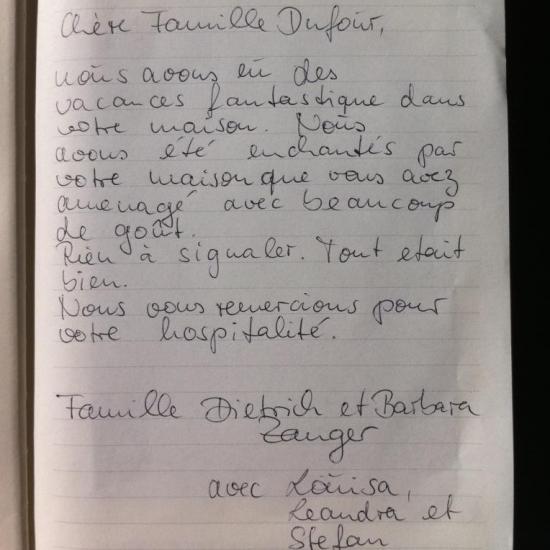 Chère Famille Dufour,
nous avons eu des
vacances fantastique dans
votre maison. Nous
avons été enchantés par
votre maison que vous avez
amenagé avec beaucoup
de goût.
Rien à signaler. Tout etait
bien.
Nous vous remercions pour
votre hospitalité.
Famille Dietrich et Barbara
Zanger
avec Louisa,
Leandra et
Stefan